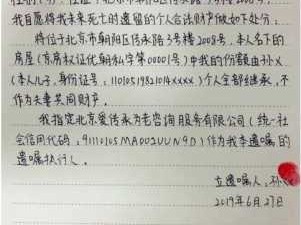 我自愿将我未来死亡遗留的个人合法财产做如下处分：
将位于北京市朝阳区传承路3号楼2008号，本人名下的
房屋（京房权证优朝私字第00001号）中我的份额由孙X
（本人儿子，身份证号：11010519821014XXXX）个人全部继承，不
作为夫妻共同财产。
我指定北京爱传承为老咨询服务有限公司（统一社
会信用代码：91110105MA002UUN9D）作为我本遗嘱的
遗嘱执行人。
立遗嘱人：孙
2019年6月27日